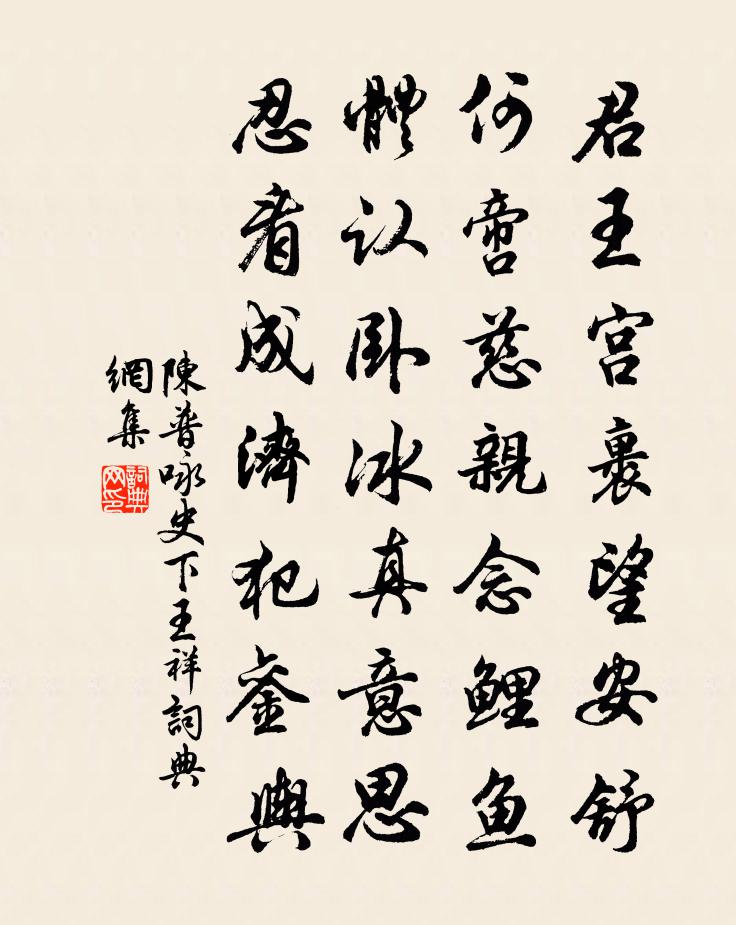 君王宮裏望安舒
何啻慈親念鯉鱼
體认卧冰真意思
忍看成濟犯銮輿
陳普咏史下王祥詞典
網集
詞典网印